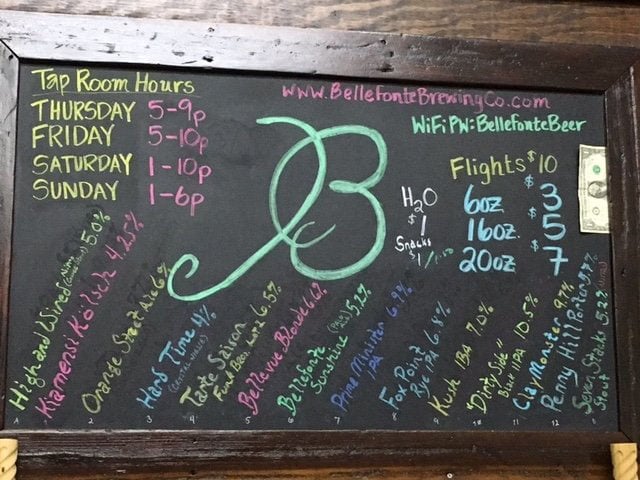 Tap Room Hours
THURSDAY 5-9p
FRIDAY 5-10p
SATURDAY 1-10p
SUNDAY 1-6p
www.BellefonteBrewingCo.com
WiFi PW: BellefonteBeer
B
Flights $10
H2O $1
Snacks $1/1.50
6oz $3
16oz $5
20oz $7
High and Wired 5.0%
Kiamensi Kölsch 4.25%
Orange Street Ale 6%
Hard Time 4%
Tarte Saison 6.5%
Bellevue Blonde 6.6%
Bellefonte Sunshine 5.2%
Prime Minister IPA 6.9%
Fox Point Rye IPA 6.8%
Kush IBA 7.0%
"Dirty Side" Burnt IIPA 10.5%
Clay Monster 9%
Penny Hill Porter
Seven Stacks Stout 5.2%
A 1 2 3 4 5 6 7 8 9 10 11 12